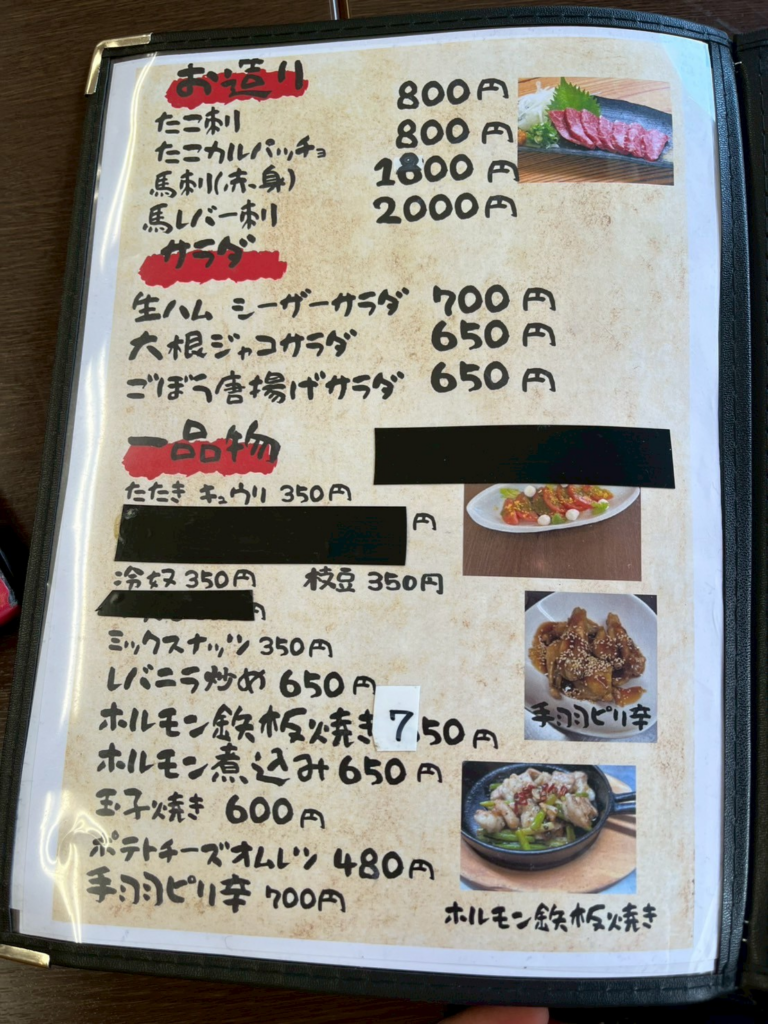 お造り
たこ刺 800円
たこカルパッチョ 800円
馬刺(赤身) 1800円
馬レバー刺 2000円
サラダ
生ハム シーザーサラダ 700円
大根ジャコサラダ 650円
ごぼう唐揚げサラダ 650円
一品物
たたき キュウリ 350円
円
冷奴 350円 枝豆 350円
円
ミックスナッツ 350円
レバニラ炒め 650円
ホルモン鉄板焼き 750円
ホルモン煮込み 650円
玉子焼き 600円
ポテトチーズオムレツ 480円
手羽ピリ辛 700円
手羽ピリ辛
ホルモン鉄板焼き